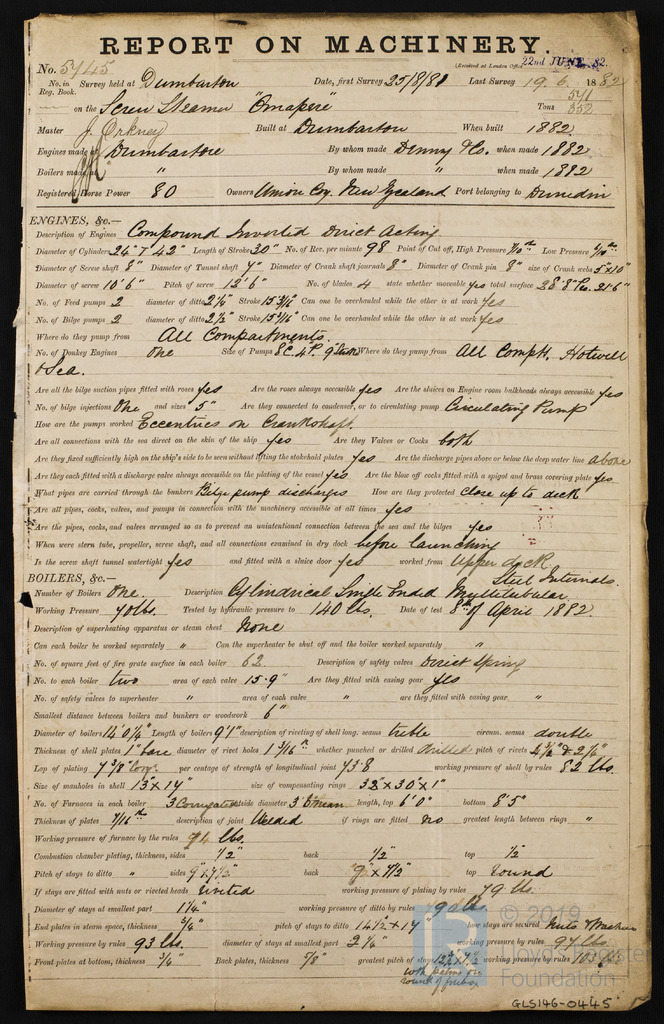 REPORT ON MACHINERY.
No. 5745 (Received at London Office 22nd JUNE 82
No. in Reg. Book. Survey held at Dumbarton Date, first Survey 25/8/81 Last Survey 19. 6. 1882
on the Screw Steamer "Omapere" Tons 541 352
Master J. Orkney Built at Dumbarton When built 1882.
Engines made at Dumbarton By whom made Denny & Co. when made 1882
Boilers made at " By whom made " when made 1882
Registered Horse Power 80 Owners Union Coy. New Zealand Port belonging to Dunedin
ENGINES, &c.—
Description of Engines Compound Inverted Direct Acting
Diameter of Cylinders 24" & 42" Length of Stroke 30" No. of Rev. per minute 98 Point of Cut off, High Pressure Low Pressure
Diameter of Screw shaft 8" Diameter of Tunnel shaft 7" Diameter of Crank shaft journals 8" Diameter of Crank pin 8" size of Crank webs 5 x 10"
Diameter of screw 10'6" Pitch of screw 12'6" No. of blades 4 state whether moveable yes total surface
No. of Feed pumps 2 diameter of ditto 2½" Stroke 15 3/16" Can one be overhauled while the other is at work yes
No. of Bilge pumps 2 diameter of ditto 2½" Stroke 15 3/16" Can one be overhauled while the other is at work yes
Where do they pump from All Compartments.
No. of Donkey Engines One Size of Pumps Where do they pump from All Compts. Hotwell
& Sea.
Are all the bilge suction pipes fitted with roses yes Are the roses always accessible yes Are the sluices on Engine room bulkheads always accessible yes
No. of bilge injections One and sizes 5" Are they connected to condenser, or to circulating pump Circulating Pump
How are the pumps worked Eccentrics on Crankshaft.
Are all connections with the sea direct on the skin of the ship yes Are they Valves or Cocks both
Are they fixed sufficiently high on the ship's side to be seen without lifting the stokehold plates yes Are the discharge pipes above or below the deep water line above
Are they each fitted with a discharge valve always accessible on the plating of the vessel yes Are the blow off cocks fitted with a spigot and brass covering plate yes
What pipes are carried through the bunkers Bilge pump discharges How are they protected close up to deck
Are all pipes, cocks, valves, and pumps in connection with the machinery accessible at all times yes
Are the pipes, cocks, and valves arranged so as to prevent an unintentional connection between the sea and the bilges yes
When were stern tube, propeller, screw shaft, and all connections examined in dry dock before launching
Is the screw shaft tunnel watertight yes and fitted with a sluice door yes worked from Upper deck
BOILERS, &c.— Steel Internals.
Number of Boilers One. Description Cylindrical Single Ended Multitubular
Working Pressure 70 lbs. Tested by hydraulic pressure to 140 lbs. Date of test 8th of April 1882.
Description of superheating apparatus or steam chest None
Can each boiler be worked separately " Can the superheater be shut off and the boiler worked separately "
No. of square feet of fire grate surface in each boiler 62. Description of safety valves Direct Spring
No. to each boiler two area of each valve 15.9" Are they fitted with easing gear yes
No. of safety valves to superheater " area of each valve " are they fitted with easing gear "
Smallest distance between boilers and bunkers or woodwork 6"
Diameter of boilers 14' 0¼" Length of boilers 9'1" description of riveting of shell long. seams treble circum. seams double
Thickness of shell plates 1" bare diameter of rivet holes 1 3/16" whether punched or drilled drilled pitch of rivets
Lap of plating per centage of strength of longitudinal joint 73.8 working pressure of shell by rules 82 lbs.
Size of manholes in shell 13" x 17" size of compensating rings 32" x 30" x 1"
No. of Furnaces in each boiler 3 Corrugated outside diameter length, top 6'0" bottom 8'5"
Thickness of plates 7/16 description of joint Welded if rings are fitted No greatest length between rings "
Working pressure of furnace by the rules 94 lbs.
Combustion chamber plating, thickness, sides ½" back ½" top ½
Pitch of stays to ditto " sides 9" x 7½" back 9" x 7½" top round
If stays are fitted with nuts or riveted heads riveted working pressure of plating by rules 79 lbs.
Diameter of stays at smallest part 1¼" working pressure of ditto by rules 90 lbs.
End plates in steam space, thickness ¾" pitch of stays to ditto 14½ x 14" how stays are secured Nuts & Washers
Working pressure by rules 93 lbs. diameter of stays at smallest part 2¼" working pressure by rules 97 lbs.
Front plates at bottom, thickness ¾" Back plates, thickness 5/8" greatest pitch of stays working pressure by rules
© 2019
Lloyd's Register
Foundation
GLS146-0445